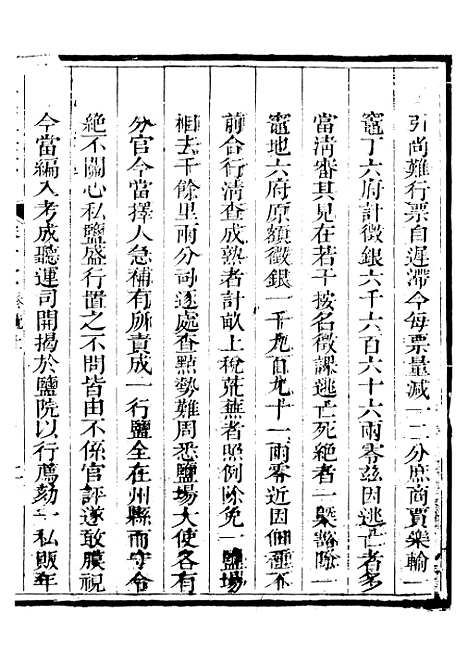 引尚難行票自遲滯今每票量減一二分庶商賈樂輸一
竈丁六府計徵銀六千六百六十六兩零茲因逃亡者多
當清審其見在若干按名徵課逃亡死絕者一槩豁除一
竈地六府原額徵銀一千九百九十一兩零近因個種不
前合行清查成熟者計畝上稅荒蕪者照例除免一鹽場
相去千餘里兩分司逐處查點勢難周悉鹽場大使各有
分官今當擇人急補有所責成一行鹽全在州縣而守令
絕不關心私鹽盛行置之不問皆由不係官評遂敢膜視
今當編入考成聽運司開揭於鹽院以行薦劾一私販年